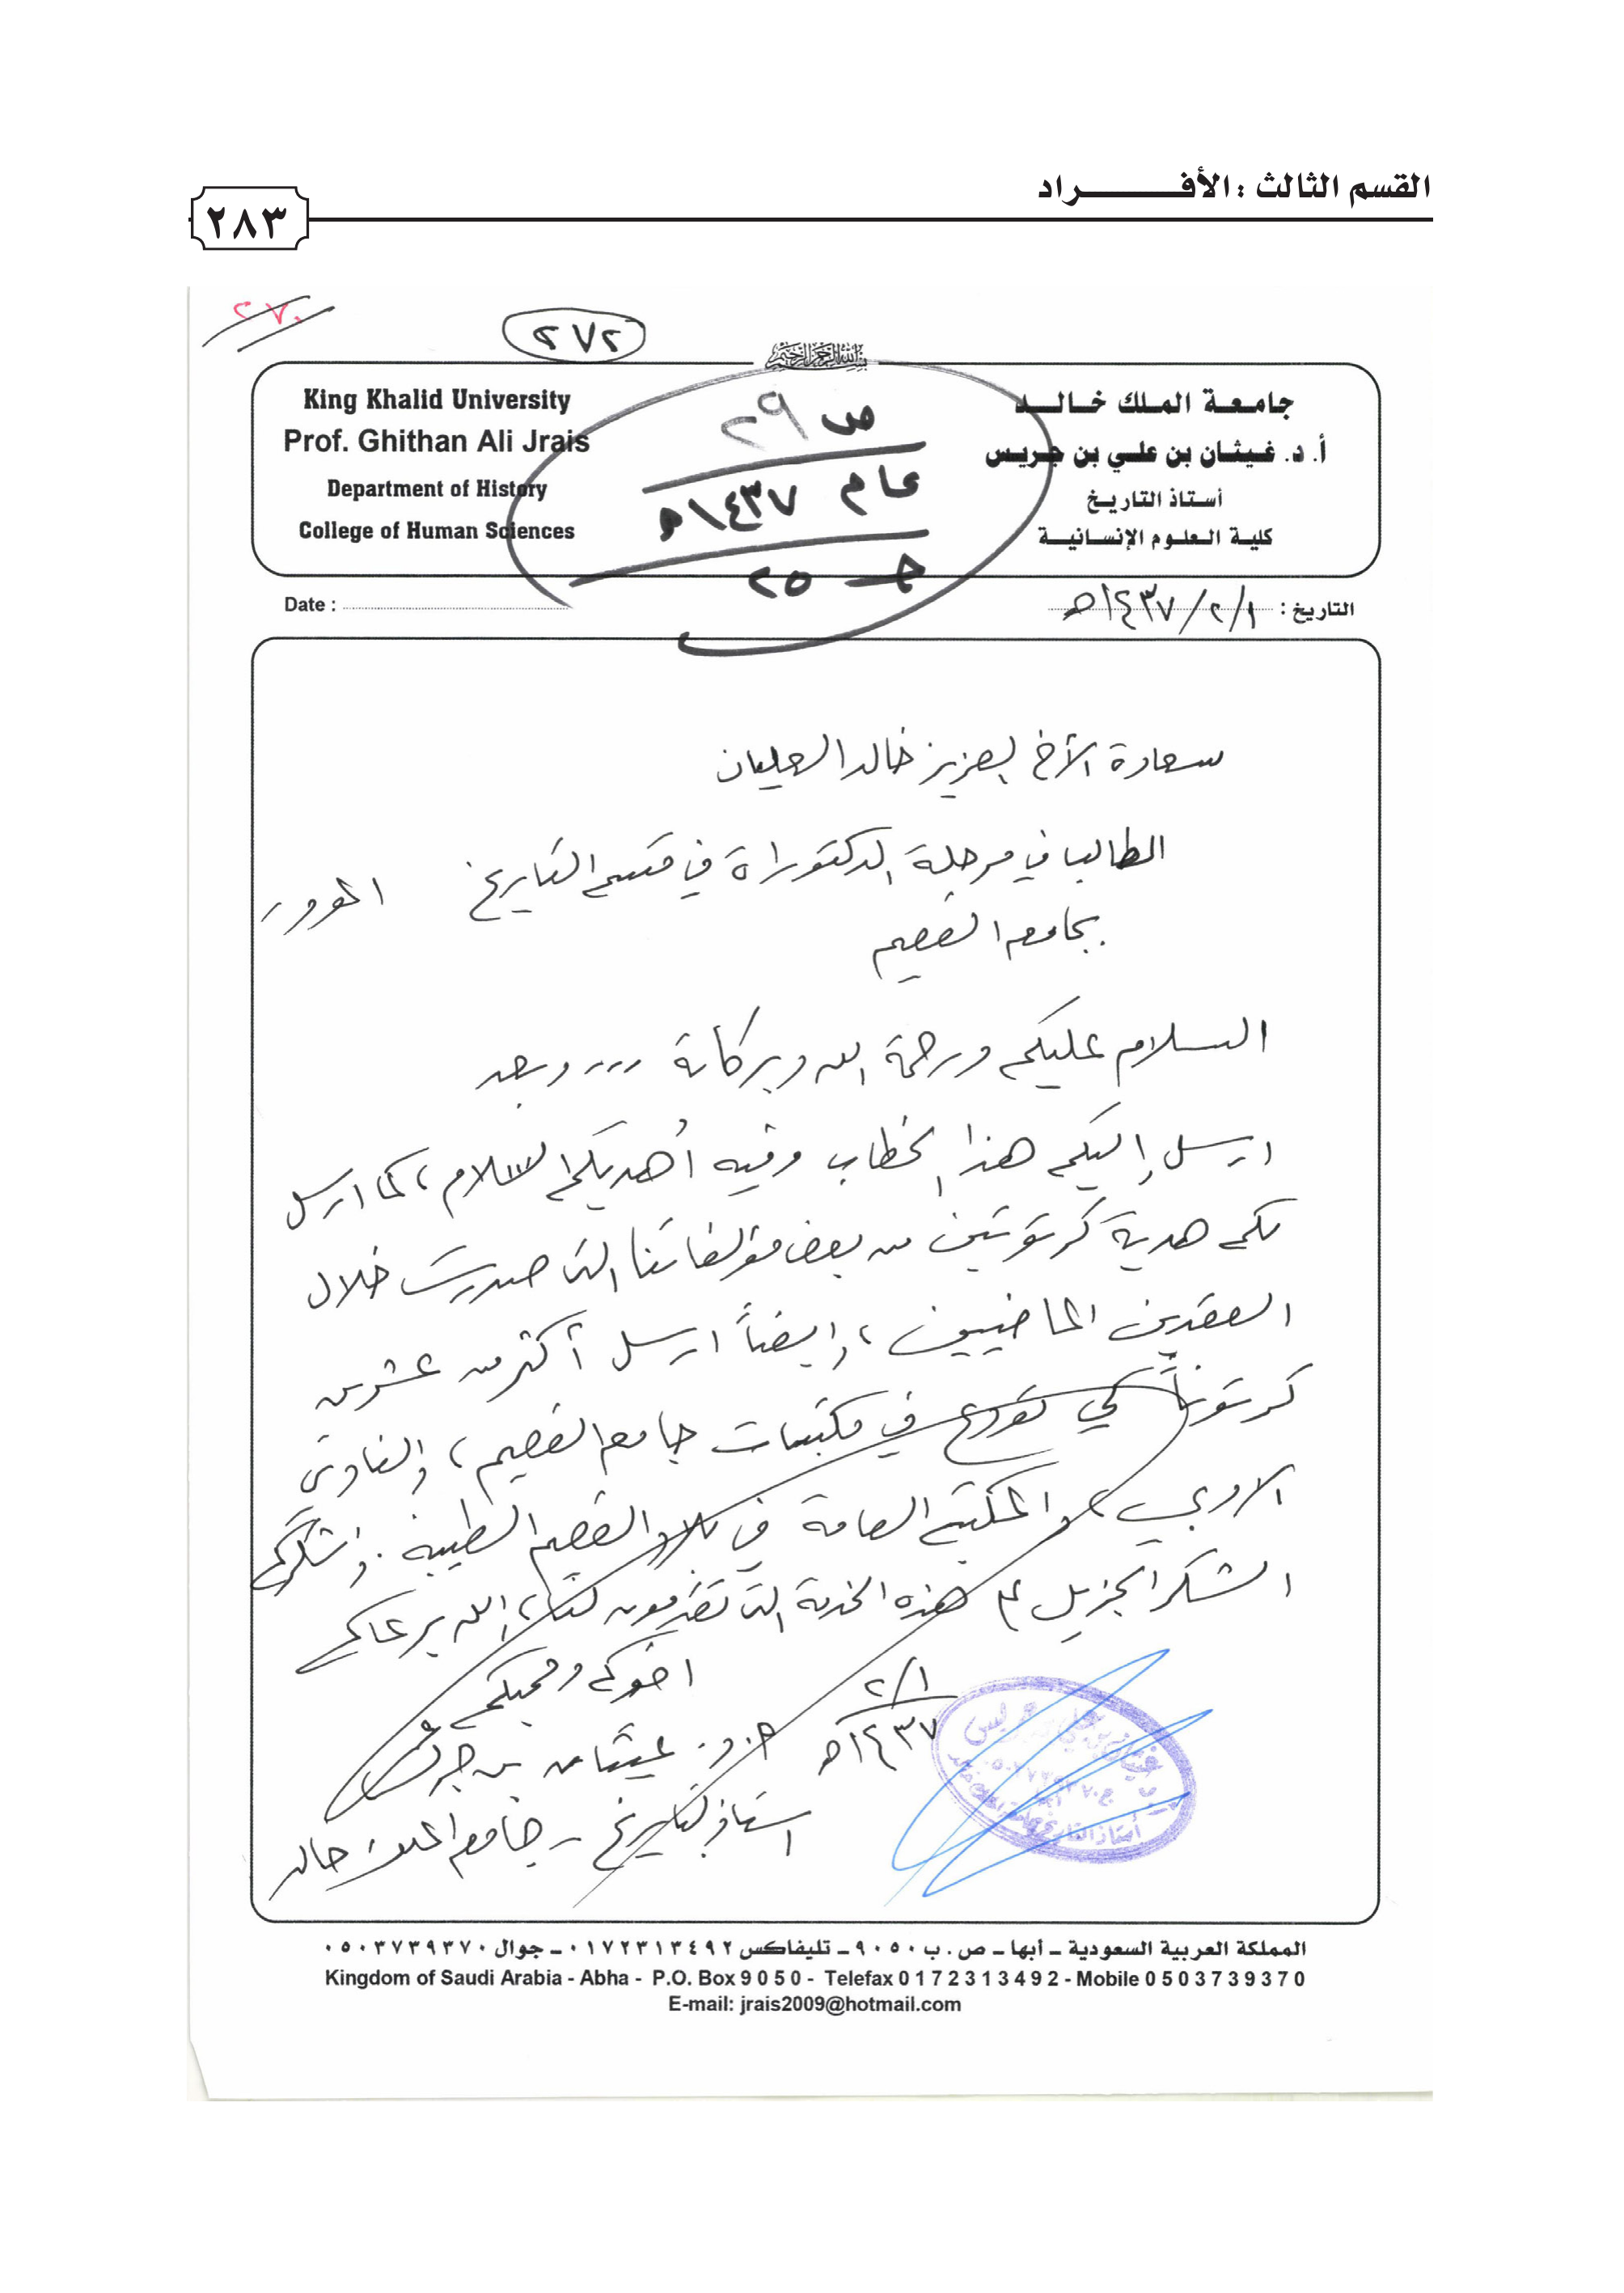 القسم الثالث : الأفـــــراد
٢٨٣
٢٧٠
٢٧٢
بسم الله الرحمن الرحيم
King Khalid University
Prof. Ghithan Ali Jrais
Department of History
College of Human Sciences
ص ٢٩
عام ١٤٣٧هـ
جـ ٢٥
جامعة الملك خالد
أ. د. غيثان بن علي بن جريس
أستاذ التاريخ
كلية العلوم الإنسانية
Date :
التاريخ : ١/٢/١٤٣٧هـ
سعادة الأخ العزيز خالد العليان
الطالب في مرحلة الدكتوراة في قسم التاريخ
بجامعة القصيم
السلام عليكم ورحمة الله وبركاته ،،، وبعد
ارسل إليكم هذا الخطاب وفيه أُهديكم السلام، كما ارسل
لكم هدية كرتونين من بعض مؤلفاتنا التي صدرت خلال
العقدين الماضيين، وايضاً ارسل أكثر من عشرين
كرتوناً كي توزع في مكتبات جامعة القصيم، والنادي
الادبي، والمكتبة العامة في بلاد القصيم الطيبة. واشكركم
الشكر الجزيل على هذه الخدمة التي تقدمونه لنا، الله يرعاكم
اخوكم ومحبكم
١/٢
١٤٣٧هـ
أ.د. غيثان بن جريس
استاذ التاريخ - جامعة الملك خالد
المملكة العربية السعودية - أبها - ص . ب ٩٠٥٠ - تليفاكس ٠١٧٢٣١٣٤٩٢ - جوال ٠٥٠٣٧٣٩٣٧٠
Kingdom of Saudi Arabia - Abha - P.O. Box 9 0 5 0 - Telefax 0 1 7 2 3 1 3 4 9 2 - Mobile 0 5 0 3 7 3 9 3 7 0
E-mail: jrais2009@hotmail.com